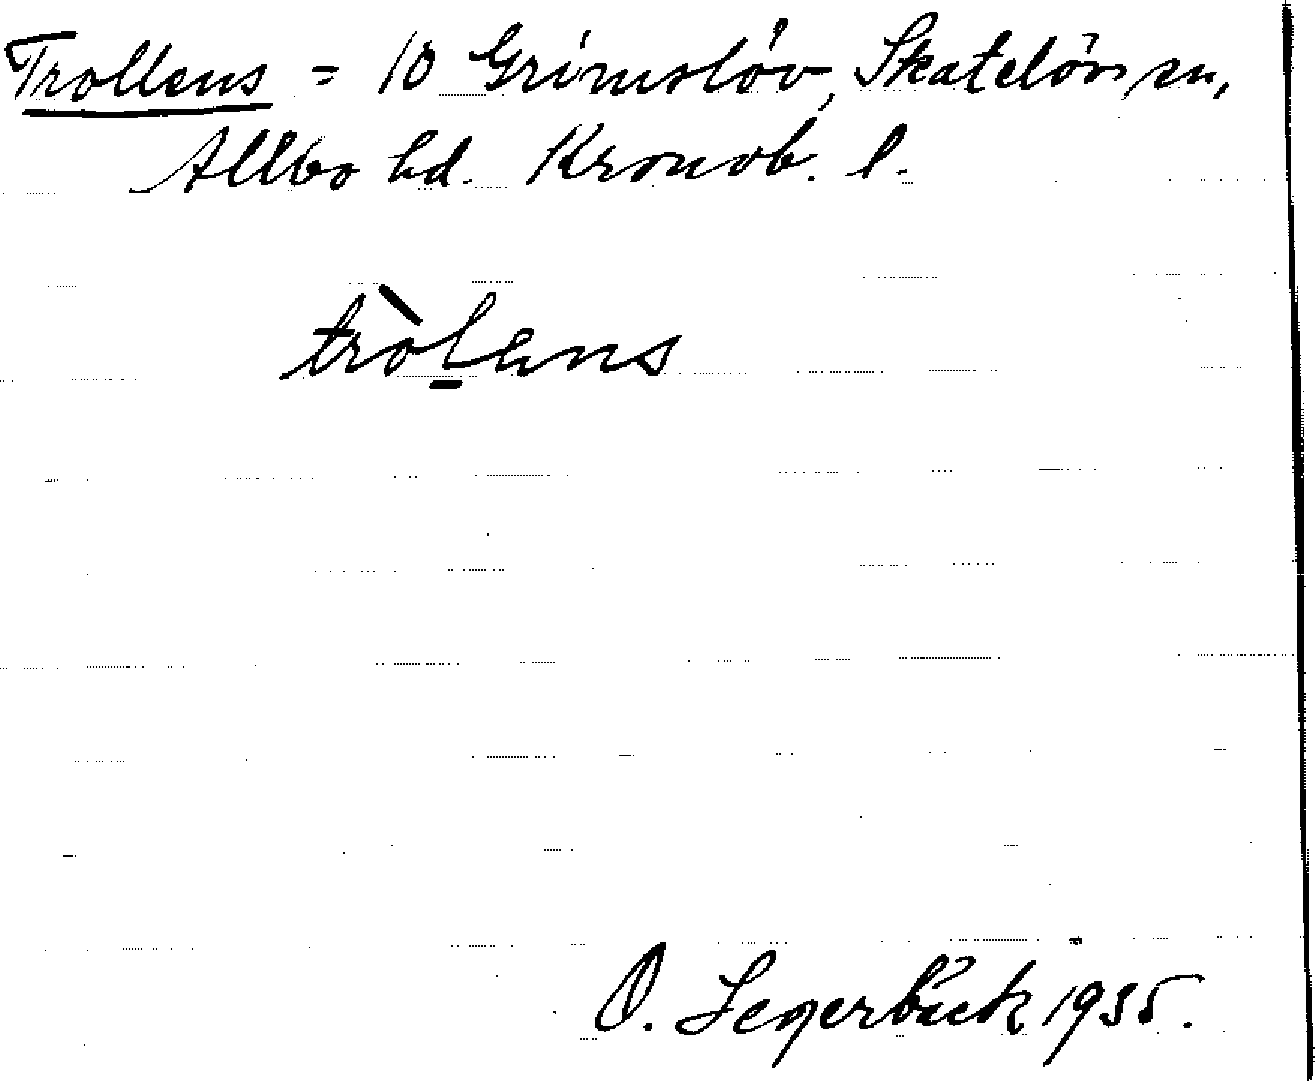 Trollens = 10 Grimslöv, Skatelövs sn,
Allbo hd. Kronob. l.
tròlens
O. Segerbäck 1935.